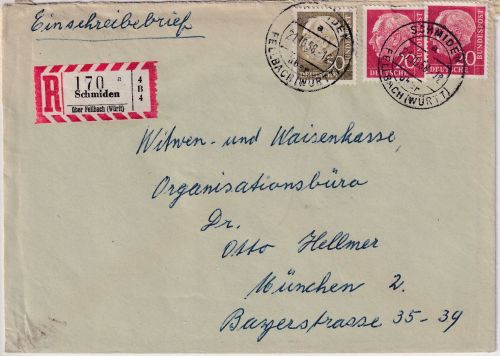 Einschreibebrief
R
170 a
Schmiden
über Fellbach (Württ)
4
B
4
SCHMIDEN
a
FELLBACH (WÜRTT)
20
DEUTSCHE
BUNDESPOST
20
DEUTSCHE
BUNDESPOST
20
SCHMIDEN
a
FELLBACH (WÜRTT)
Witwen- und Waisenkasse,
Organisationsbüro
Dr.
Otto Hellmer
München 2.
Bayerstrasse 35-39